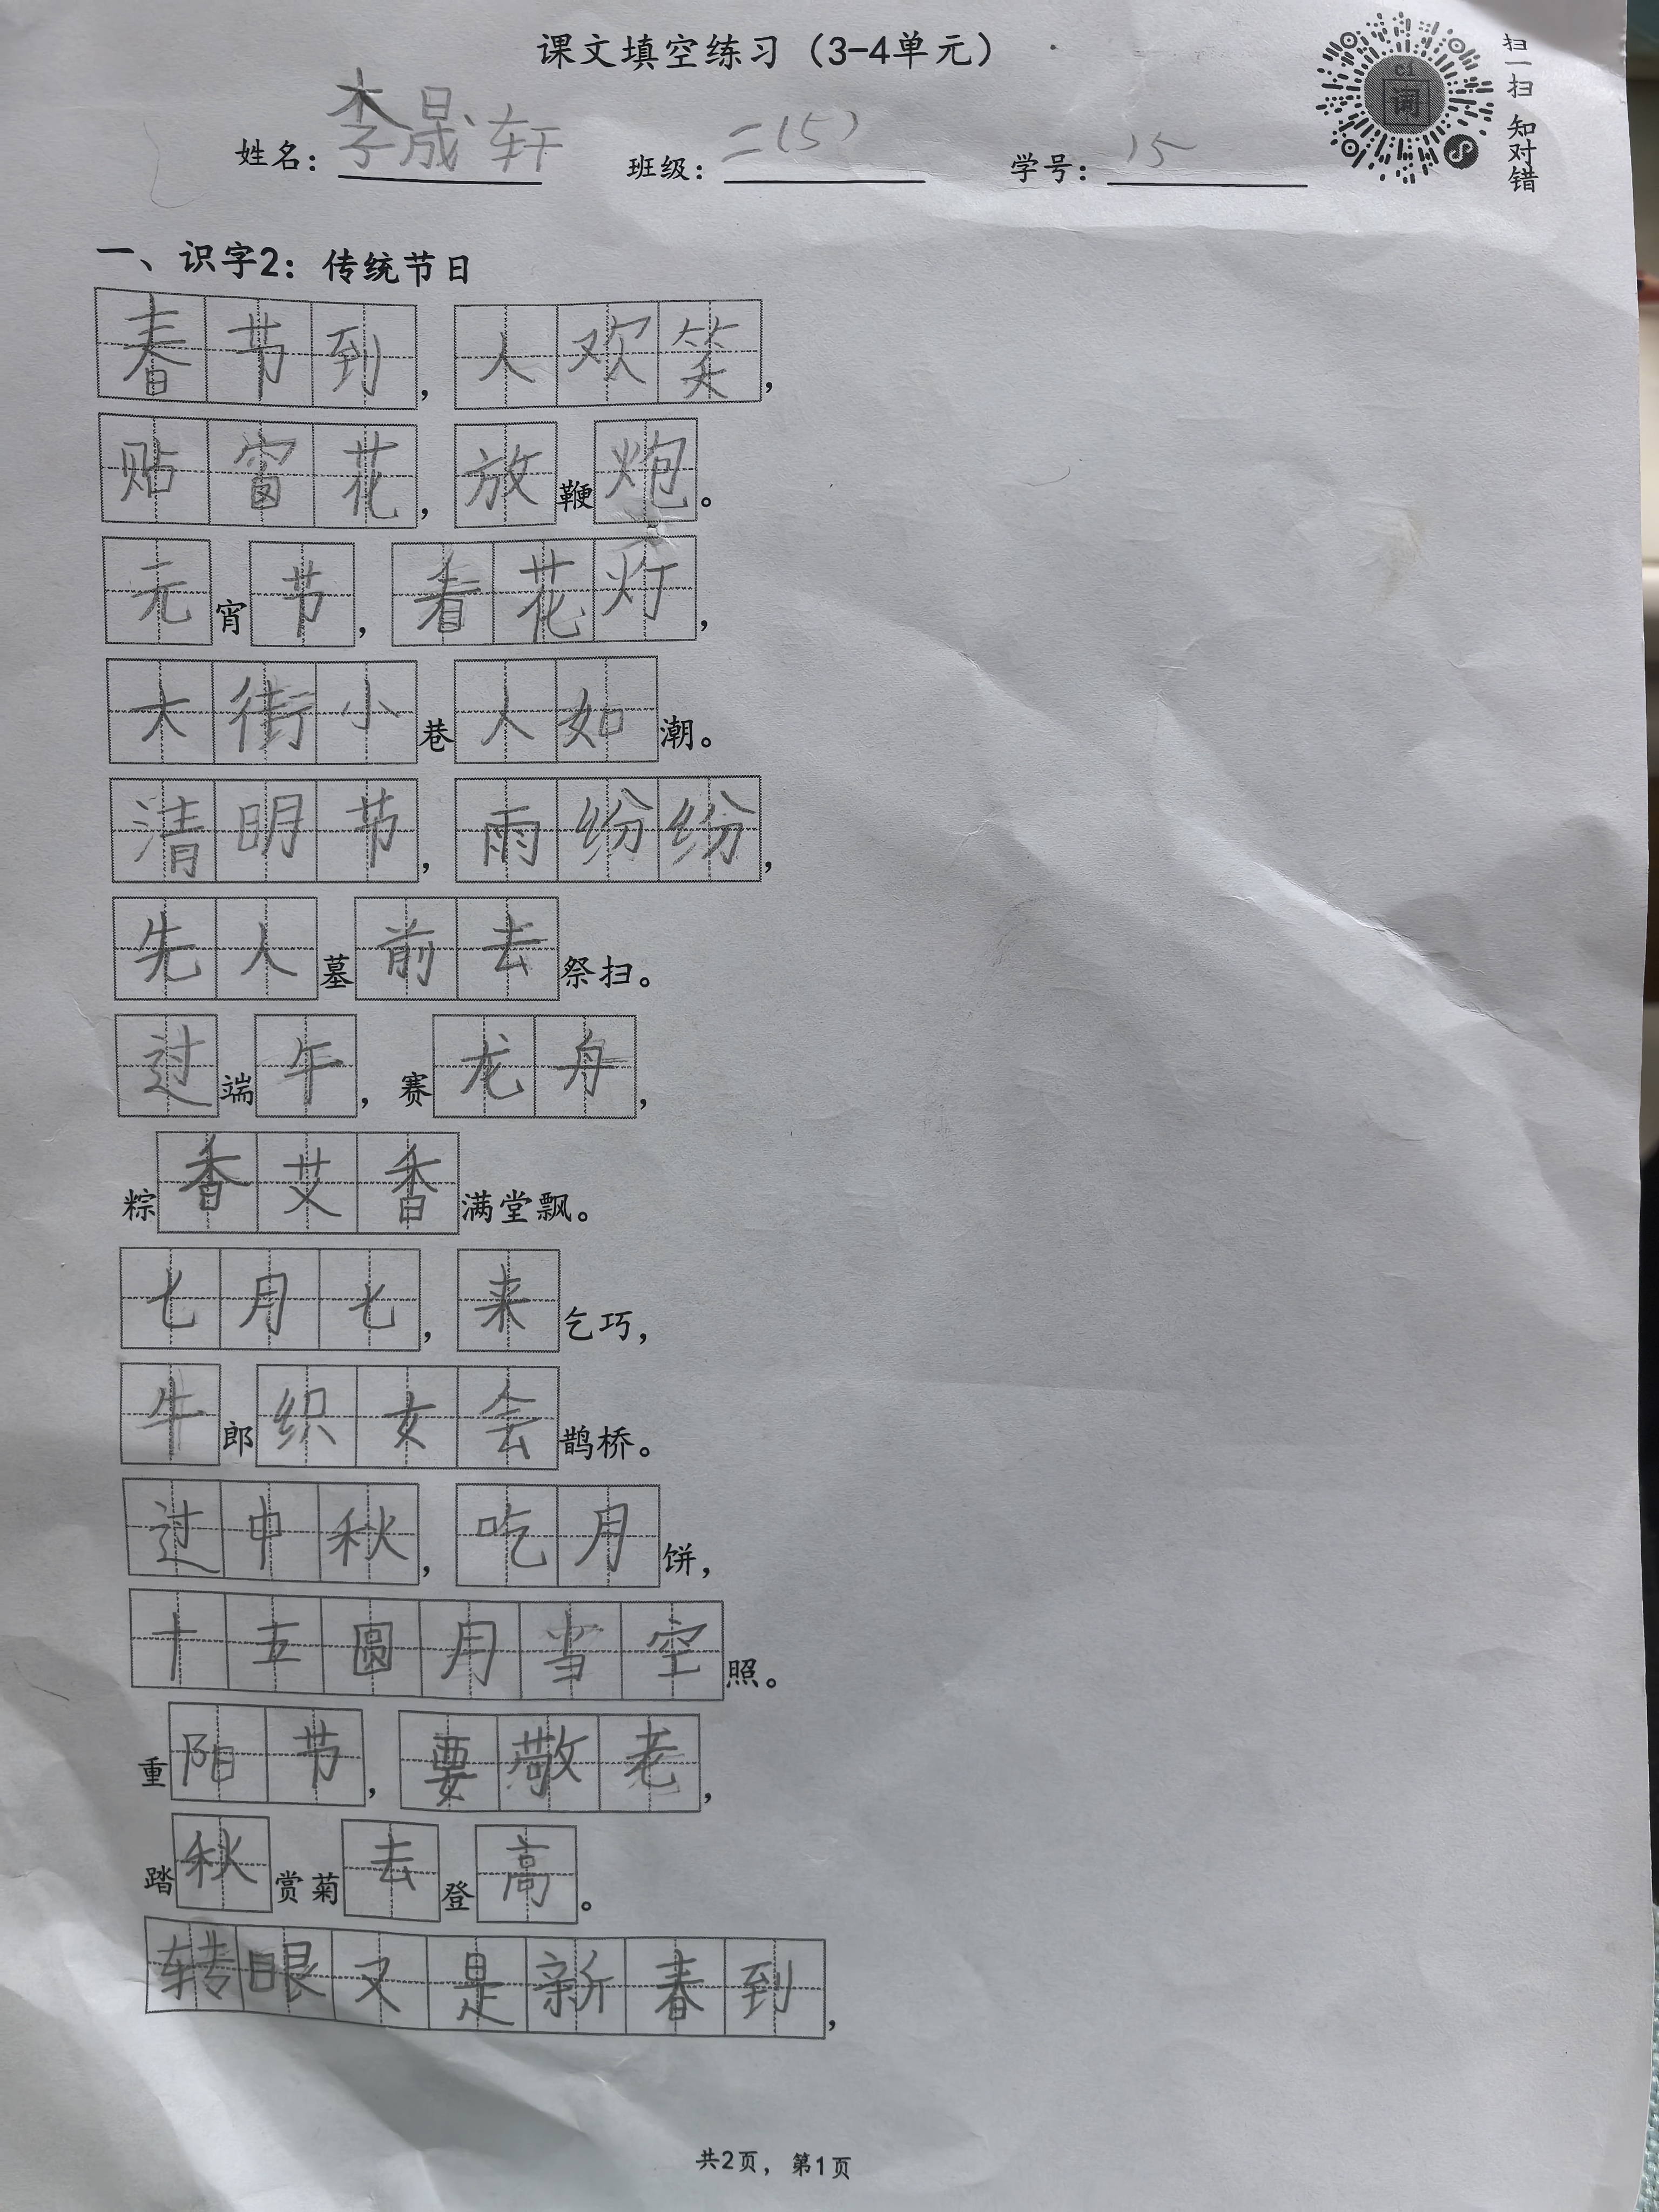 课文填空练习（3-4单元）
扫一扫 知对错
姓名：李晟轩 班级：二(5) 学号：15
一、识字2：传统节日
春节到，人欢笑，
贴窗花，放鞭炮。
元宵节，看花灯，
大街小巷人如潮。
清明节，雨纷纷，
先人墓前去祭扫。
过端午，赛龙舟，
粽香艾香满堂飘。
七月七，来乞巧，
牛郎织女会鹊桥。
过中秋，吃月饼，
十五圆月当空照。
重阳节，要敬老，
踏秋赏菊去登高。
转眼又是新春到，
共2页，第1页